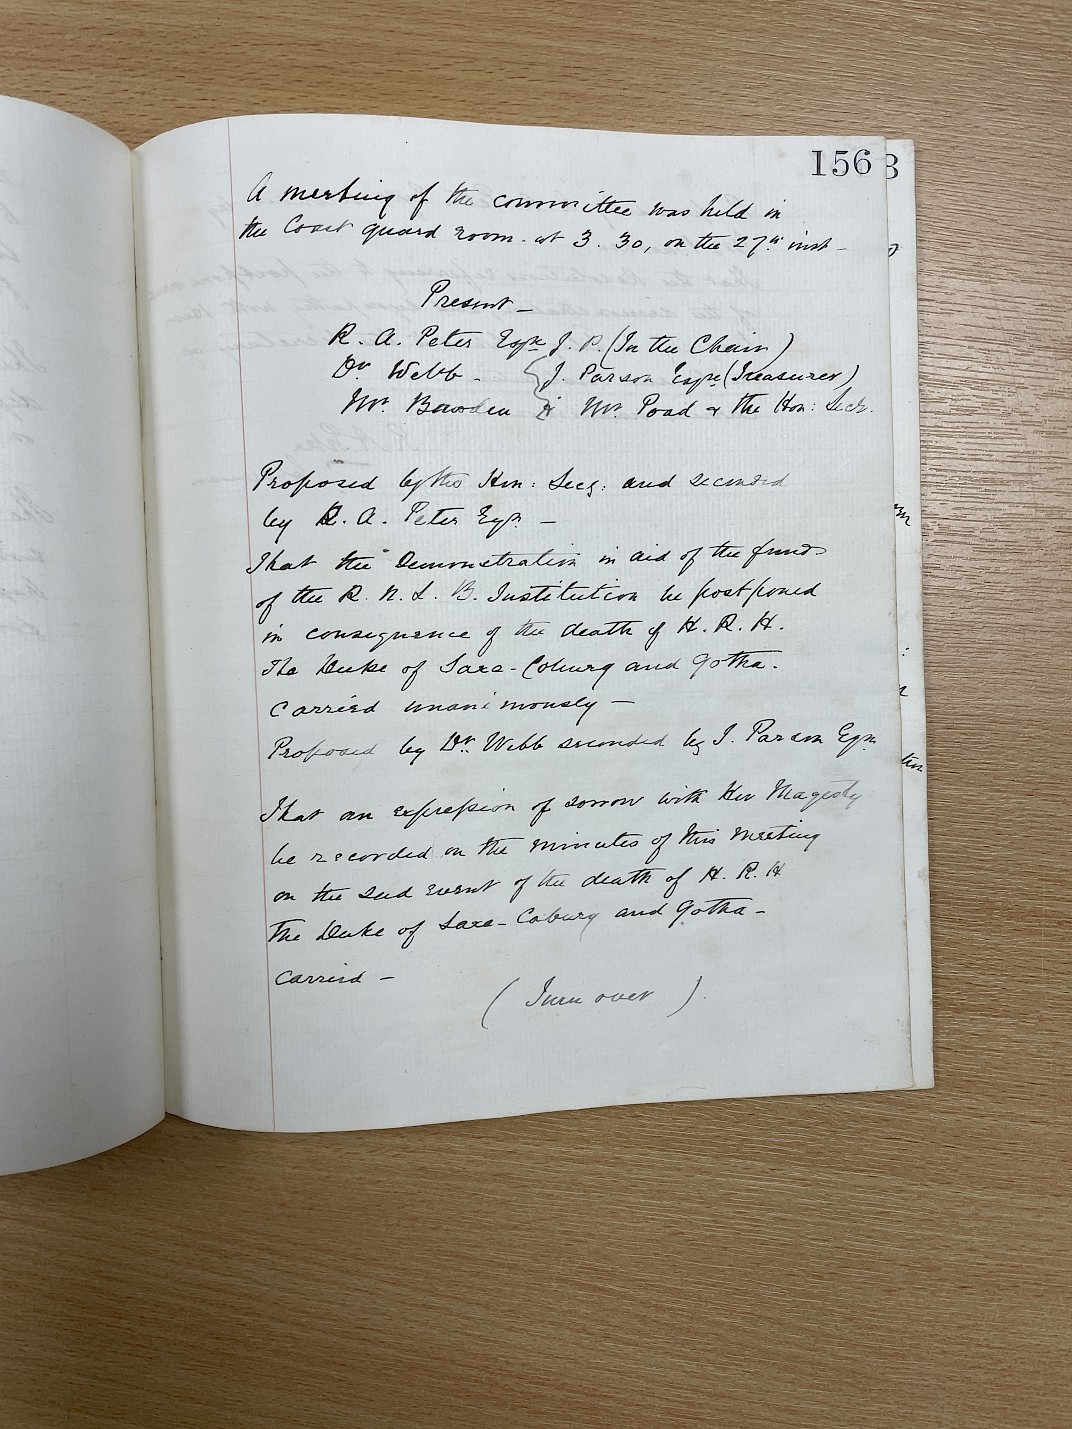 156
A meeting of the committee was held in
the Coast guard room. at 3. 30, on the 27th inst -
Present -
R. A. Peter Esqre J. P. (In the Chair)
Dr Webb - J. Parson Esqre (Treasurer)
Mr. Bowden & Mr. Poad & the Hon: Secr.
Proposed by the Hon: Secy: and seconded
by R. A. Peter Esqr. -
That the Demonstration in aid of the funds
of the R. N. L. B. Institution be postponed
in consequence of the death of H. R. H.
The Duke of Saxe-Coburg and Gotha.
Carried unanimously -
Proposed by Dr. Webb seconded by J. Parson Esqr.
That an expression of sorrow with Her Magesty
be recorded on the minutes of this meeting
on the sad event of the death of H. R. H
The Duke of Saxe-Coburg and Gotha -
Carried -
(Turn over).